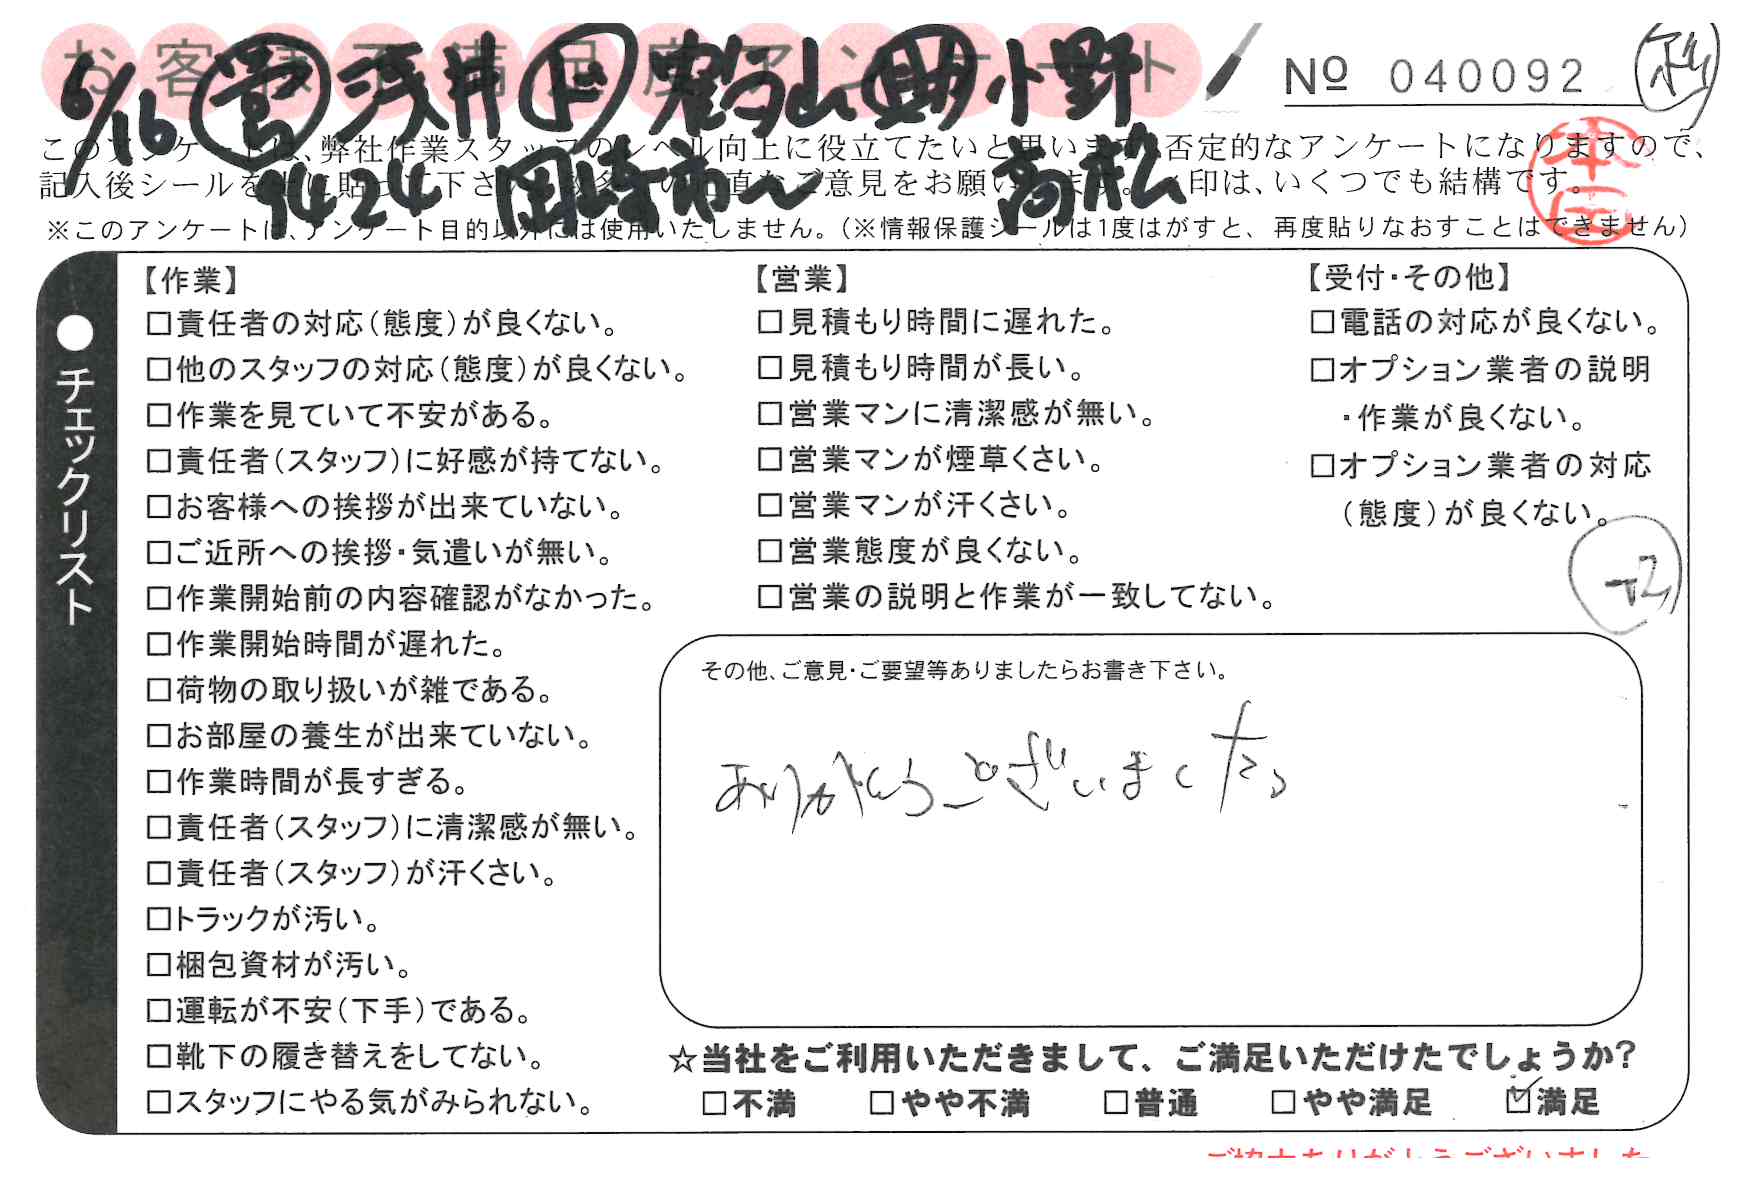 お客様満足度アンケート
6/16 営 浅井 ド 山 助 小野
1424 岡崎市〜高松
№ 040092
このアンケートは、弊社作業スタッフのレベル向上に役立てたいと思います。否定的なアンケートになりますので、
記入後シールを上に貼って下さい。数多くの正直なご意見をお願いします。 印は、いくつでも結構です。
※このアンケートは、アンケート目的以外には使用いたしません。（※情報保護シールは1度はがすと、再度貼りなおすことはできません）
●チェックリスト
【作業】
□責任者の対応（態度）が良くない。
□他のスタッフの対応（態度）が良くない。
□作業を見ていて不安がある。
□責任者（スタッフ）に好感が持てない。
□お客様への挨拶が出来ていない。
□ご近所への挨拶・気遣いが無い。
□作業開始前の内容確認がなかった。
□作業開始時間が遅れた。
□荷物の取り扱いが雑である。
□お部屋の養生が出来ていない。
□作業時間が長すぎる。
□責任者（スタッフ）に清潔感が無い。
□責任者（スタッフ）が汗くさい。
□トラックが汚い。
□梱包資材が汚い。
□運転が不安（下手）である。
□靴下の履き替えをしてない。
□スタッフにやる気がみられない。
【営業】
□見積もり時間に遅れた。
□見積もり時間が長い。
□営業マンに清潔感が無い。
□営業マンが煙草くさい。
□営業マンが汗くさい。
□営業態度が良くない。
□営業の説明と作業が一致してない。
【受付・その他】
□電話の対応が良くない。
□オプション業者の説明
・作業が良くない。
□オプション業者の対応
（態度）が良くない。
その他、ご意見・ご要望等ありましたらお書き下さい。
ありがとうございました。
☆当社をご利用いただきまして、ご満足いただけたでしょうか？
□不満 □やや不満 □普通 □やや満足 ☑満足
ご協力ありがとうございました